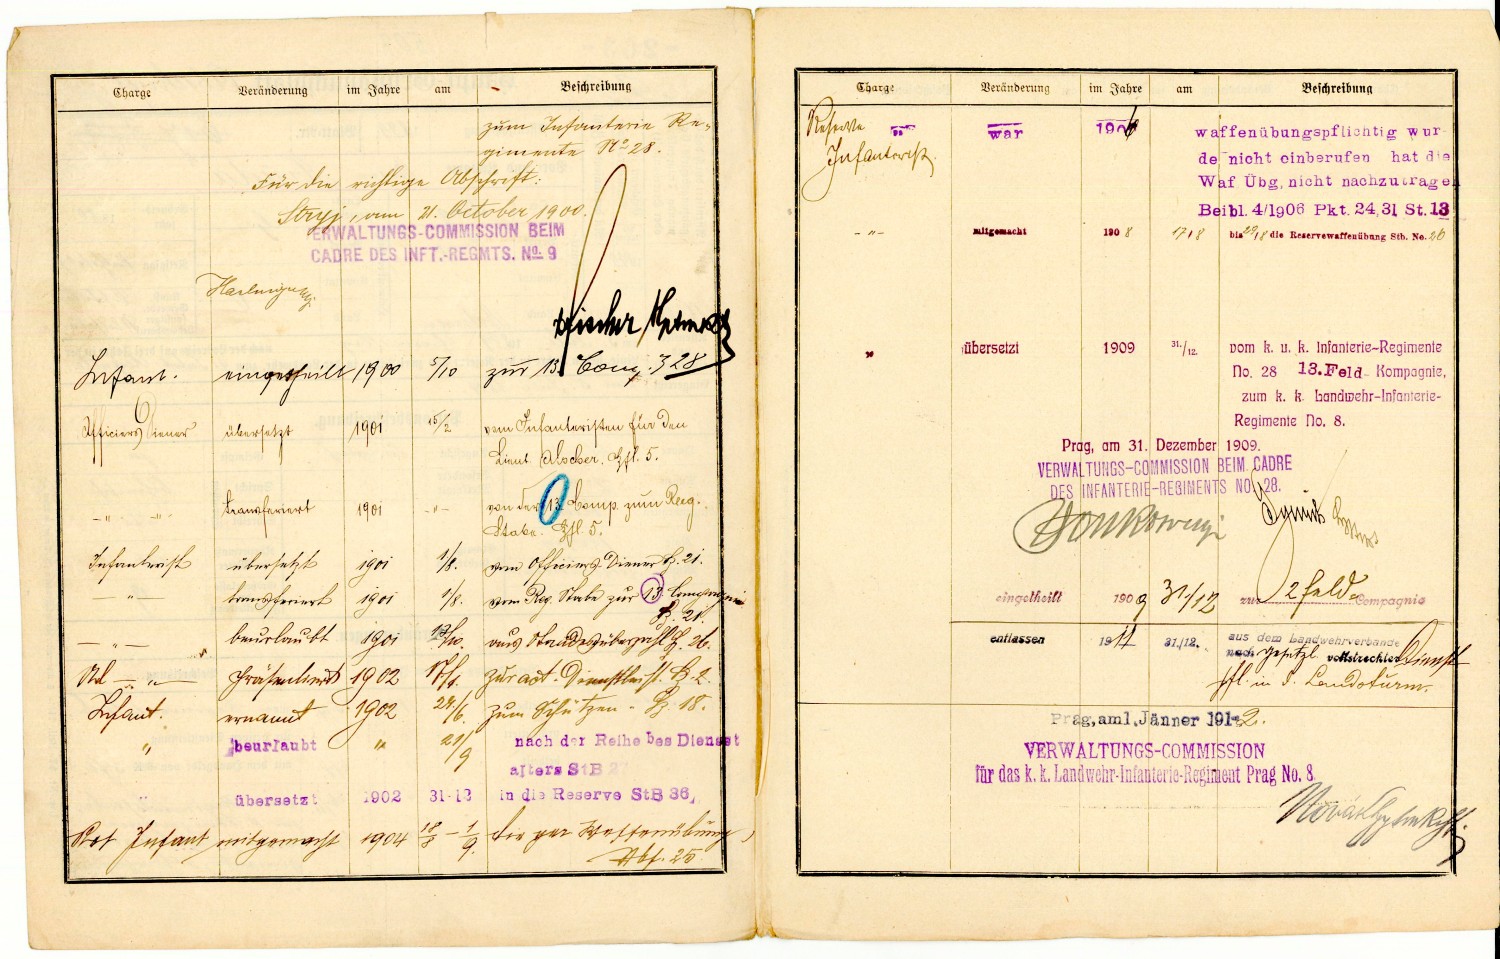 Charge Veränderung im Jahre am Beschreibung
zum Infanterie Re-
gimente No 28.
Für die richtige Abschrift:
Stryj, am 21. October 1900.
VERWALTUNGS-COMMISSION BEIM
CADRE DES INFT.-REGMTS. No. 9
Infant. eingetheilt 1900 5/10 zur 13. Comp. 328
Officiers Diener übersetzt 1901 15/2 vom Infanteristen für den
Lieut. 5.
-"- -"- transferiert 1901 -"- von der 13. Comp. zum Reg.
Stabe. 5.
Infanterist übersetzt 1901 1/8. vom Officiers Diener 21.
-"- transferiert 1901 1/8. vom Reg. Stabe zur 13. Compagnie
21.
-"- beurlaubt 1901 /10. 26.
-"- 1902 zur act. Dienstleist. 2.
Infant. ernannt 1902 24/6. zum Schützen - 18.
" beurlaubt " 21/9 nach der Reihe des Dienst
alters StB 27
" übersetzt 1902 31-12 in die Reserve StB 36,
Infant mitgemacht 1904 18/8 - 1/9. die Waffenübung
25.
Charge Veränderung im Jahre am Beschreibung
Reserve
Infanterist. war 1906 waffenübungspflichtig wur-
de nicht einberufen hat die
Waf Übg, nicht nachzutragen
Beibl. 4/1906 Pkt. 24,31 St. 13
-"- mitgemacht 1908 17/8 bis 29/8 die Reservewaffenübung Stb. No. 26
" übersetzt 1909 31./12. vom k. u. k. Infanterie-Regimente
No. 28 13. Feld- Kompagnie,
zum k. k. Landwehr-Infanterie-
Regimente No. 8.
Prag, am 31. Dezember 1909.
VERWALTUNGS-COMMISSION BEIM CADRE
DES INFANTERIE-REGIMENTS NO. 28.
eingetheilt 1909 31/12 zur 2 Feld Compagnie
entlassen 1911 31./12. aus dem Landwehrverbande
nach gesetzl vollstreckter Dienst
pfl. in d. Landsturm.
Prag, am 1. Jänner 1912.
VERWALTUNGS-COMMISSION
für das k. k. Landwehr-Infanterie-Regiment Prag No. 8.